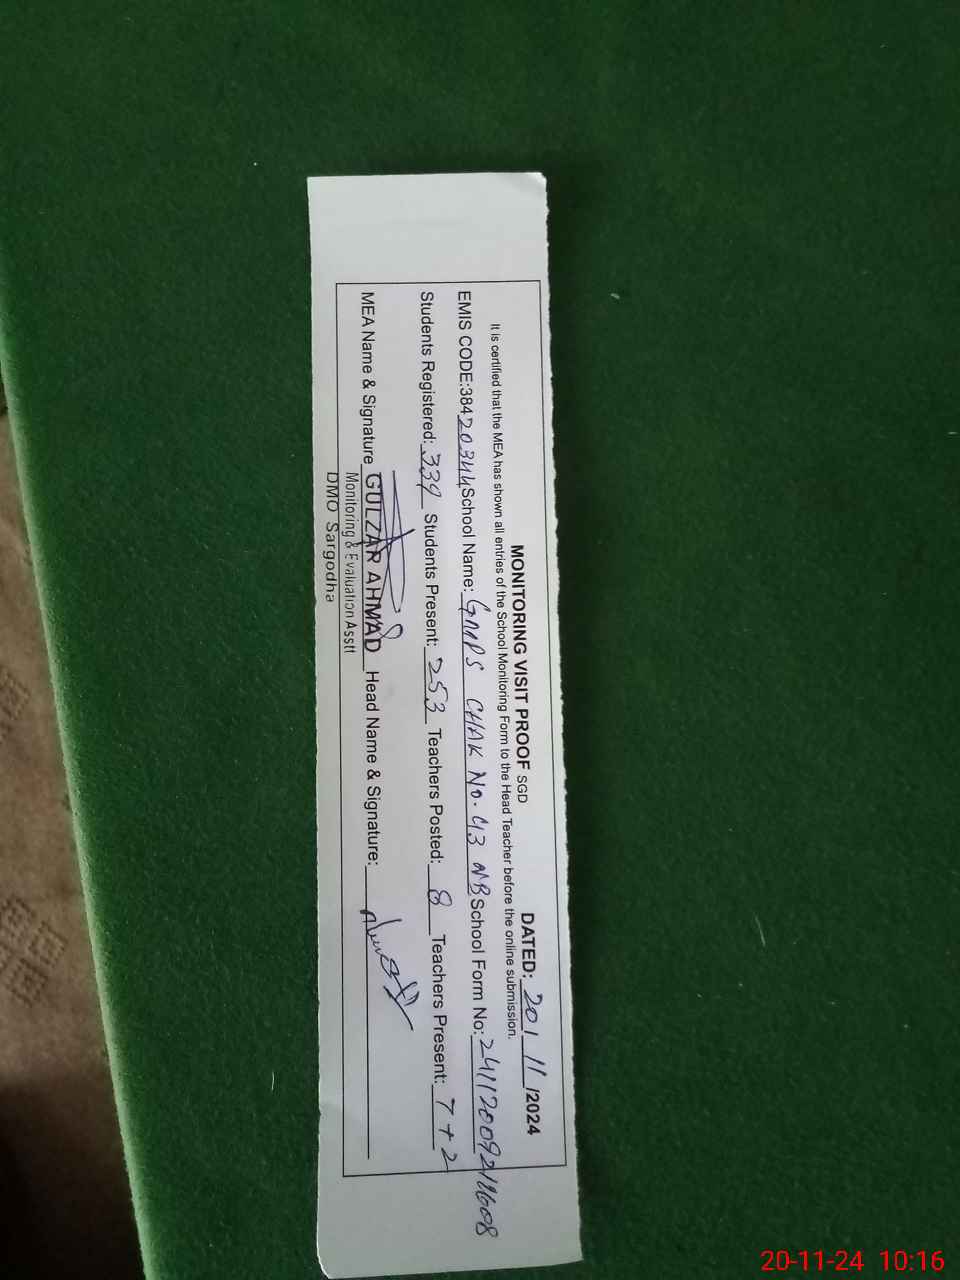 MONITORING VISIT PROOF SGD DATED: 20/11/2024
It is certified that the MEA has shown all entries of the School Monitoring Form to the Head Teacher before the online submission.
EMIS CODE:38420344 School Name: GMPS CHAK No. 43 NB School Form No:
Students Registered: 339 Students Present: 253 Teachers Posted: 8 Teachers Present: 7+2
MEA Name & Signature GULZAR AHMAD Head Name & Signature:
Monitoring & Evaluation Asstt
DMO Sargodha
20-11-24 10:16